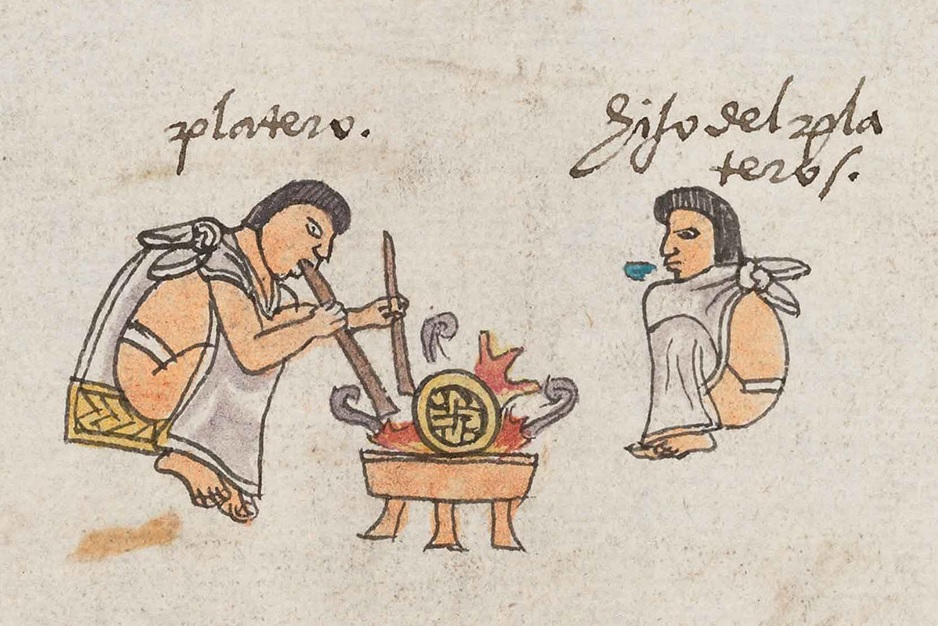 platero.
hijo del pla
teros.